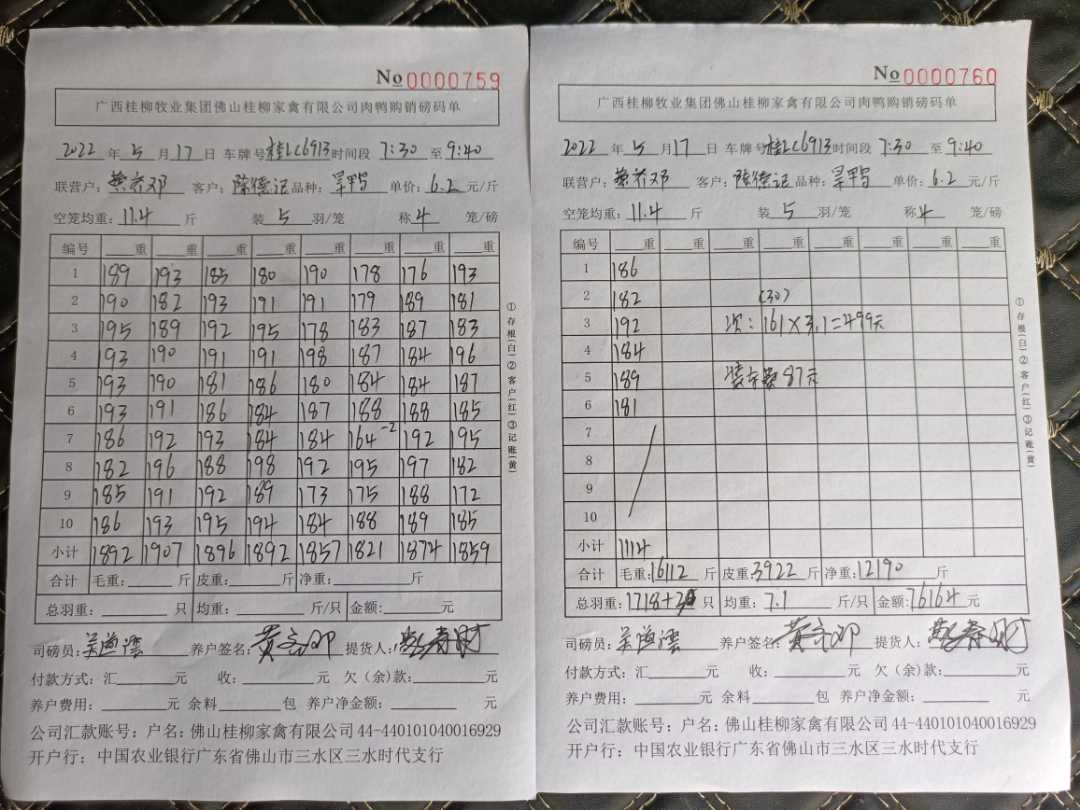 No 0000759
广西桂柳牧业集团佛山桂柳家禽有限公司肉鸭购销磅码单
2022 年 5 月 17 日 车牌号 桂LC6913 时间段 7:30 至 9:40
联营户: 客户: 陈德记 品种: 旱鸭 单价: 6.2 元/斤
空笼均重: 11.4 斤 装 5 羽/笼 称 4 笼/磅
编号 重 重 重 重 重 重 重 重
1 189 193 185 180 190 178 176 193
2 190 182 193 191 191 179 189 181
3 195 189 192 195 178 183 187 183
4 193 190 191 191 198 187 184 196
5 193 190 181 186 180 184 184 187
6 193 191 186 184 187 188 188 185
7 186 192 193 184 184 164-2 192 195
8 182 196 188 198 192 195 197 182
9 185 191 192 189 173 175 188 172
10 186 193 195 194 184 188 189 185
小计 1892 1907 1896 1892 1857 1821 1874 1859
合计 毛重: 斤 皮重: 斤 净重: 斤
总羽重: 只 均重: 斤/只 金额: 元
司磅员: 养户签名: 提货人:
付款方式: 汇 元 收: 元 欠(余)款: 元
养户费用: 元 余料 包 养户净金额: 元
公司汇款账号: 户名: 佛山桂柳家禽有限公司 44-440101040016929
开户行: 中国农业银行广东省佛山市三水区三水时代支行
①存根(白)②客户(红)③记账(黄)
No 0000760
广西桂柳牧业集团佛山桂柳家禽有限公司肉鸭购销磅码单
2022 年 5 月 17 日 车牌号 桂LC6913 时间段 7:30 至 9:40
联营户: 客户: 陈德记 品种: 旱鸭 单价: 6.2 元/斤
空笼均重: 11.4 斤 装 5 羽/笼 称 4 笼/磅
编号 重 重 重 重 重 重 重 重
1 186
2 182 (30)
3 192 次: 161×3.1=499元
4 184
5 189 87元
6 181
7
8
9
10
小计 1114
合计 毛重: 16112 斤 皮重: 3922 斤 净重: 12190 斤
总羽重: 1718+ 只 均重: 7.1 斤/只 金额: 76164 元
司磅员: 养户签名: 提货人:
付款方式: 汇 元 收: 元 欠(余)款: 元
养户费用: 元 余料 包 养户净金额: 元
公司汇款账号: 户名: 佛山桂柳家禽有限公司 44-440101040016929
开户行: 中国农业银行广东省佛山市三水区三水时代支行
①存根(白)②客户(红)③记账(黄)